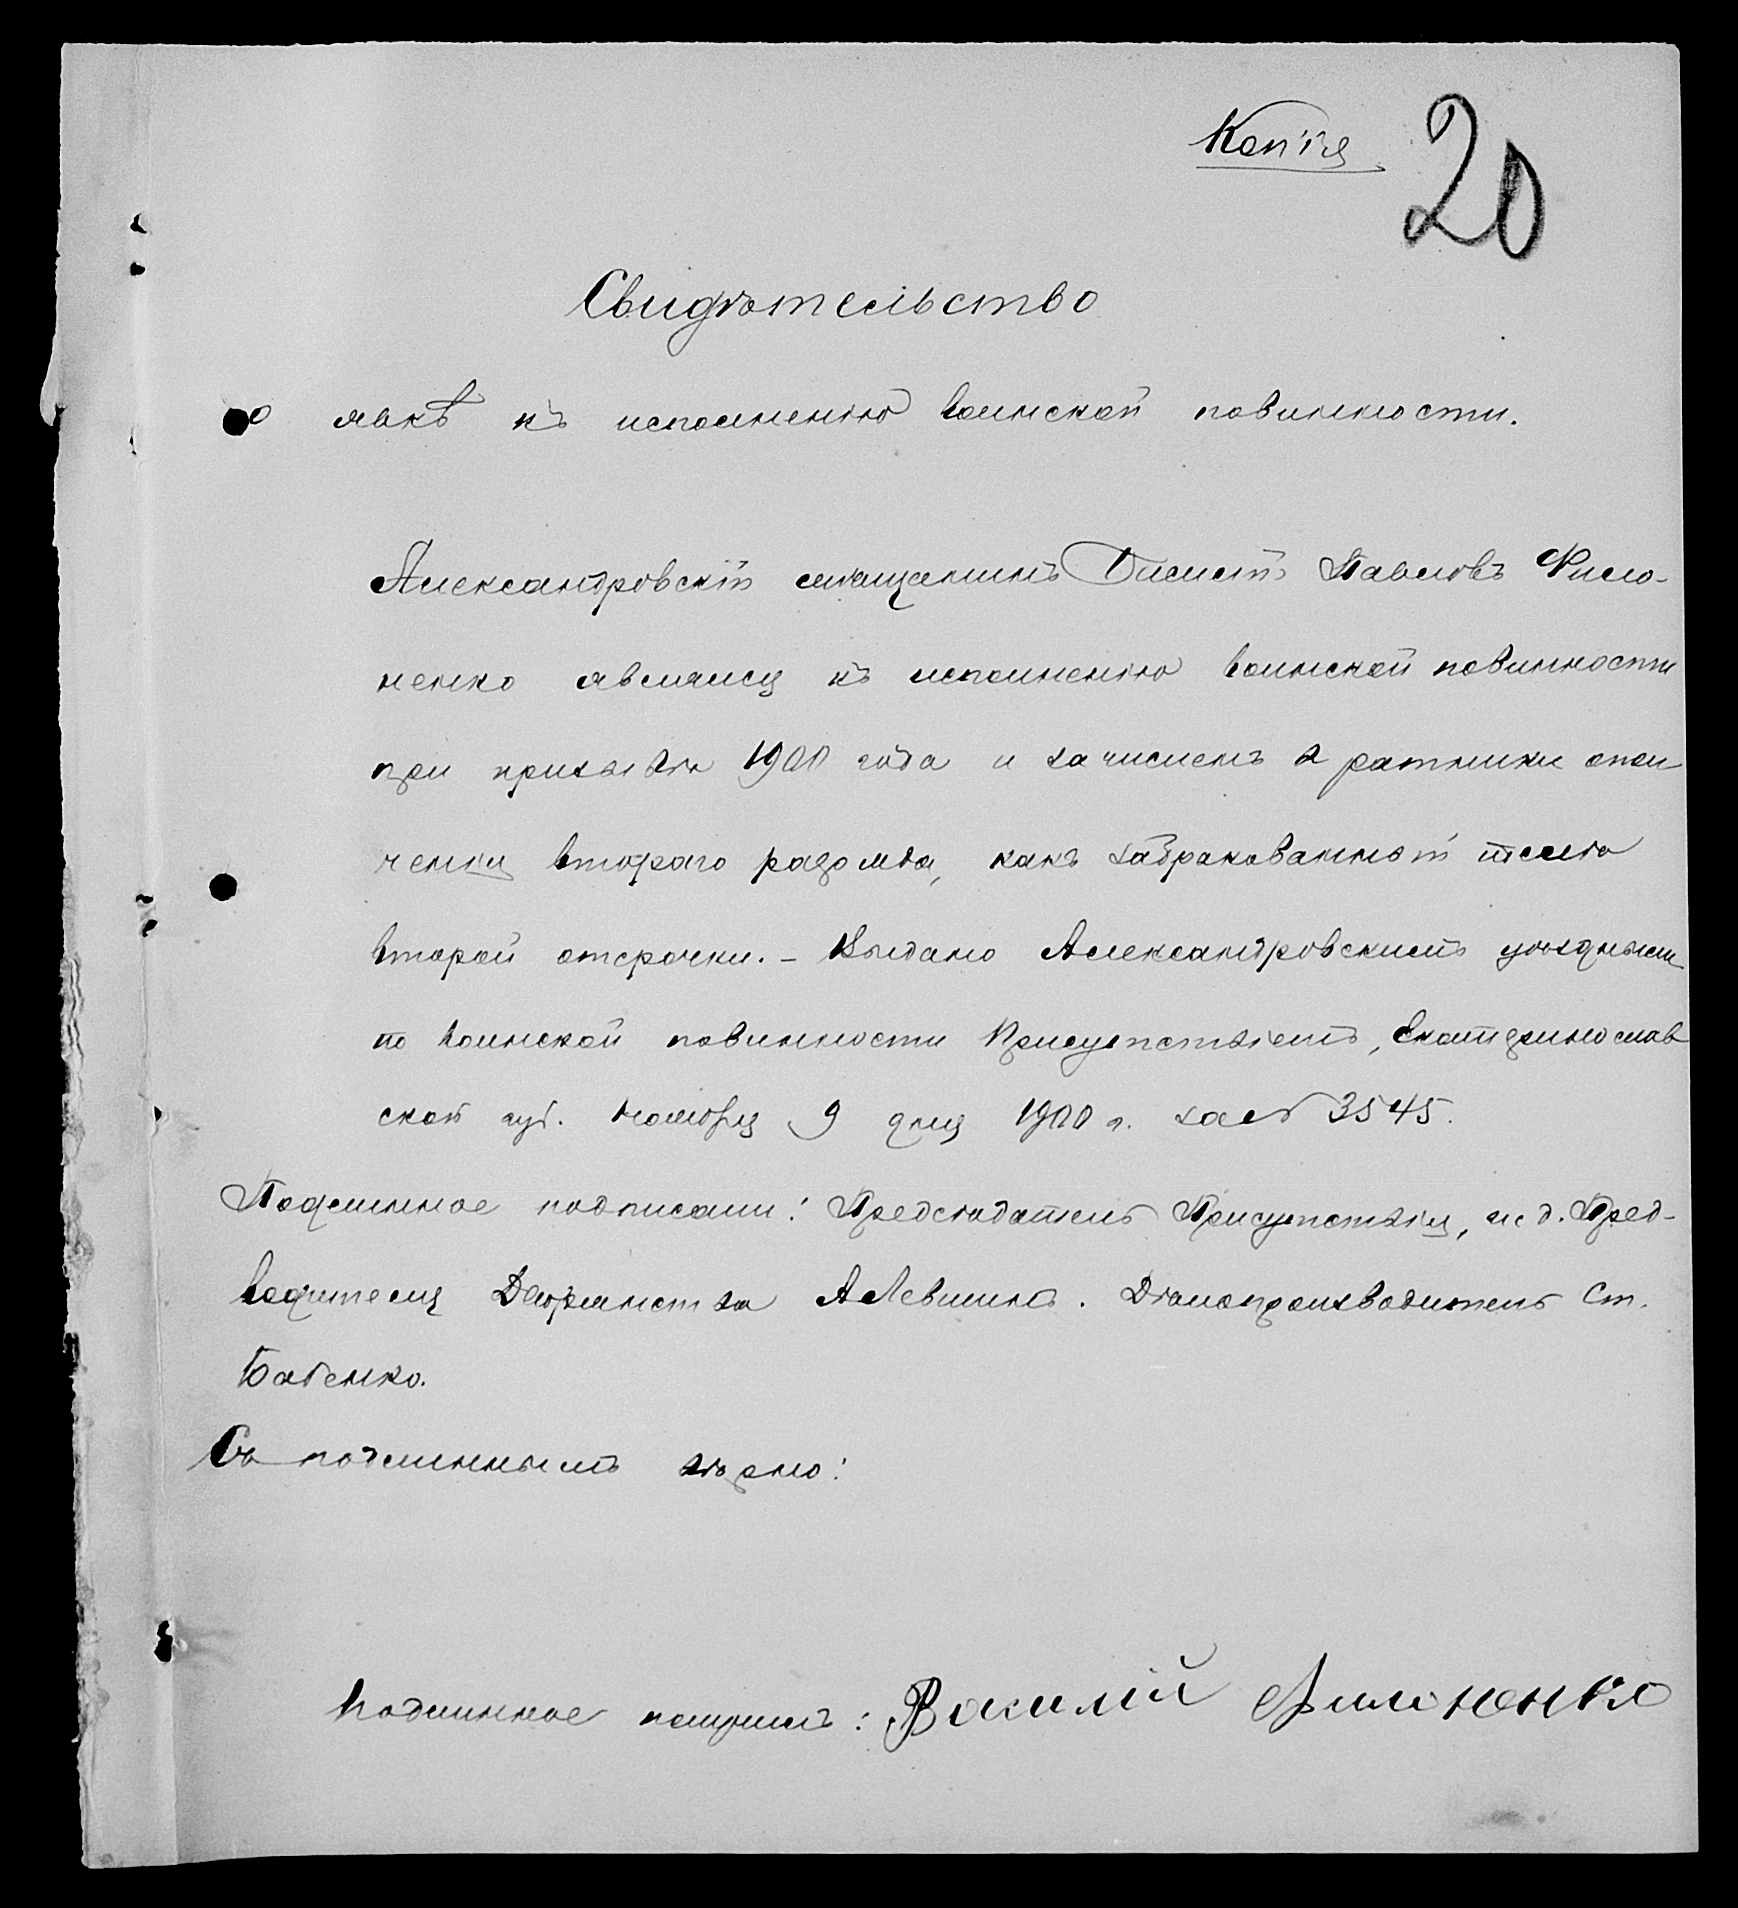 Копія
20
Свидѣтельство
о явкѣ къ исполненію воинской повинности.
Александровскій мѣщанинъ Павловъ Фило-
ненко являлся къ исполненію воинской повинности
при призывѣ 1900 года и зачисленъ в ратники опол
ченія второго разряда, какъ забракованный послѣ
второй отсрочки. – Выдано Александровскимъ уѣзднымъ
по воинской повинности Присутствіемъ, Екатеринослав
ской губ. Ноября 9 дня 1900 г. за № 3545.
Подлинное подписали: Предсѣдатель Присутствія, и. д. Пред-
водителя Дворянства А Левшинъ. Дѣлопроизводитель Ст.
Бабенко.
Съ подлиннымъ вѣрно:
Подлинное получилъ: Василій Филоненко